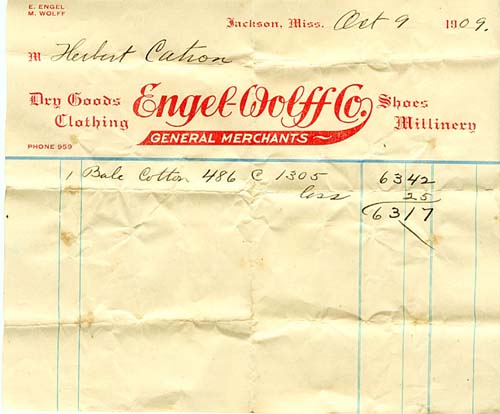 E. ENGEL
M. WOLFF
Jackson, Miss. Oct 9 1909.
M Herbert Catron
Dry Goods Clothing
Engel-Wolff Co.
Shoes Millinery
GENERAL MERCHANTS
PHONE 959
1 Bale Cotton 486 @ 1305 6342
less 25
6317